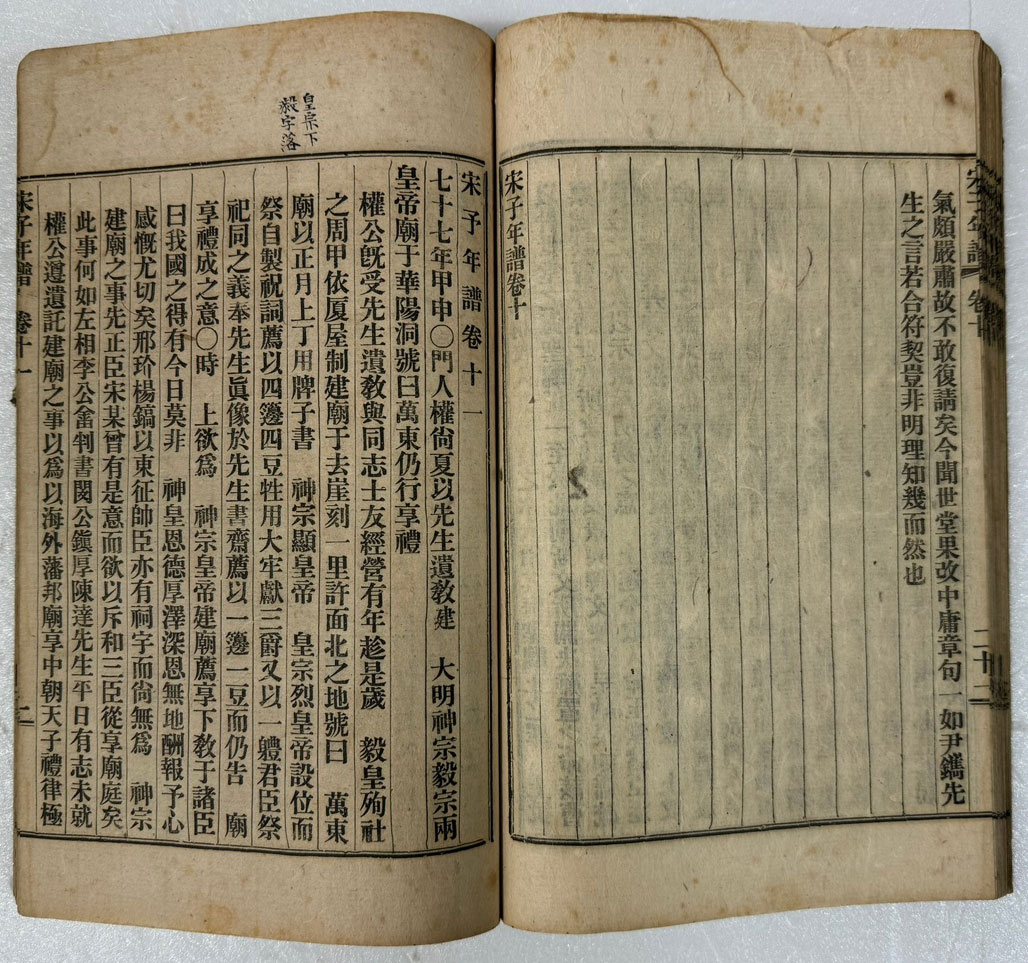 宋子年譜 卷十 二十二
氣頗嚴肅故不敢復請矣今聞世堂果改中庸章句一如尹鑴先
生之言若合符契豈非明理知幾而然也
宋子年譜卷十
皇宗下
毅字落
宋子年譜卷十一
七十七年甲申〇門人權尙夏以先生遺敎建 大明神宗毅宗兩
皇帝廟于華陽洞號曰萬東仍行享禮
權公旣受先生遺敎與同志士友經營有年趁是歲 毅皇殉社
之周甲依厦屋制建廟于去崖刻一里許面北之地號曰 萬東
廟以正月上丁用牌子書 神宗顯皇帝 皇宗烈皇帝設位而
祭自製祝詞薦以四籩四豆牲用大牢獻三爵又以一軆君臣祭
祀同之義奉先生眞像於先生書齋薦以一籩一豆而仍告 廟
享禮成之意〇時 上欲爲 神宗皇帝建廟薦享下敎于諸臣
曰我國之得有今日莫非 神皇恩德厚澤深恩無地酬報予心
感慨尤切矣邢玠楊鎬以東征帥臣亦有祠宇而尙無爲 神宗
建廟之事先正臣宋某曾有是意而欲以斥和三臣從享廟庭矣
此事何如左相李公畬判書閔公鎭厚陳達先生平日有志未就
權公遵遺託建廟之事以爲以海外藩邦廟享中朝天子禮律極
宋子年譜 卷十一 二